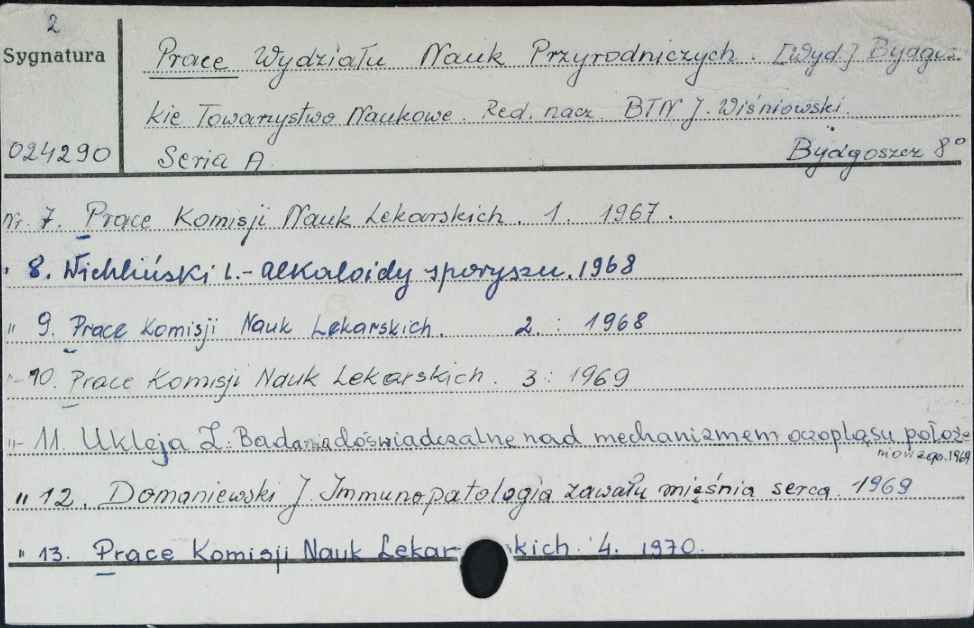 2
Sygnatura
Prace Wydziału Nauk Przyrodniczych. [Wyd.] Bydgos-
kie Towarzystwo Naukowe. Red. nacz. BTN J. Wiśniowski.
024290
Seria A.
Bydgoszcz 8°
Nr. 7. Prace Komisji Nauk Lekarskich. 1. 1967.
" 8. Wichliński L. - alkaloidy sporyszu. 1968
" 9. Prace Komisji Nauk Lekarskich. 2. : 1968
"- 10. Prace Komisji Nauk Lekarskich. 3: 1969
"- 11. Ukleja Z. Badania doświadczalne nad mechanizmem oczopląsu położe-
niowego. 1969
" 12. Domaniewski J. Immunopatologia zawału mięśnia serca. 1969
" 13. Prace Komisji Nauk Lekarskich. 4. 1970.